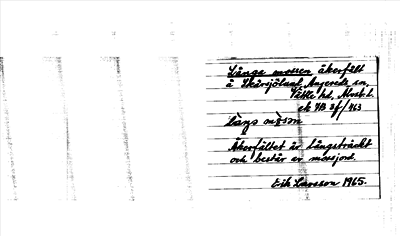 Långe mossen åkerfält
å Skårsjölund, Angereds sn,
Vättle hd, Älvsb. l.
ek 7B 3f/463
långs mosn
Åkerfältet är långsträckt
och består av mossjord.
Erik Larsson 1965.